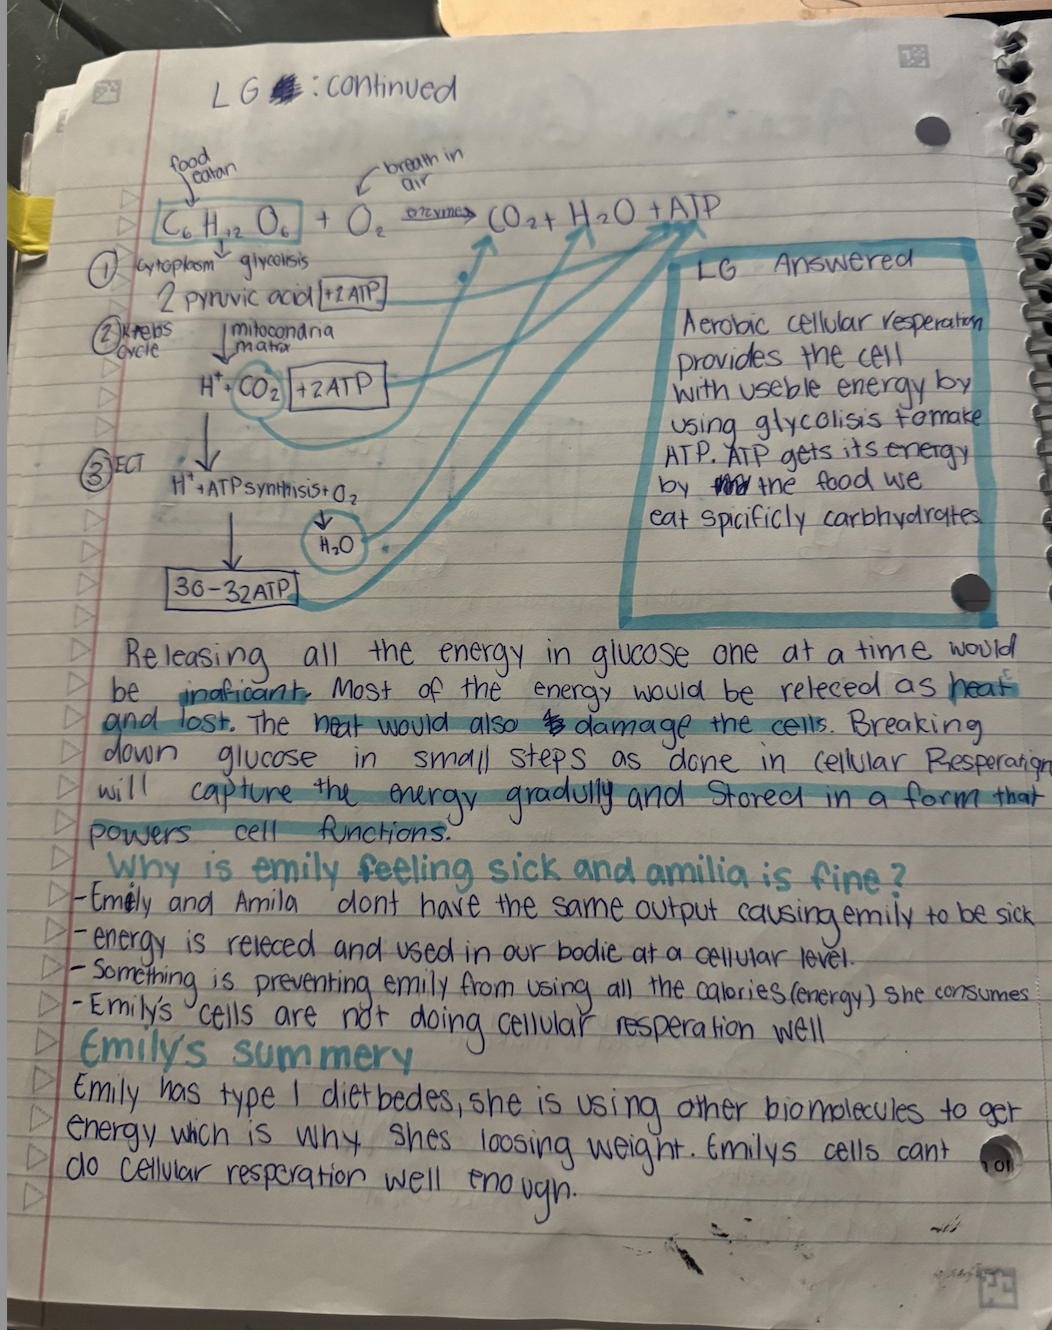 LG : continued
food
eatan
breath in
air
C₆ H₁₂ O₆ + O₂ enzymes CO₂ + H₂O + ATP
① cytoplasm glycolisis
2 pyruvic acid +2 ATP
② Krebs
cycle
mitocondria
matrix
H⁺ + CO₂ +2 ATP
③ ECT
H⁺ + ATP synthisis + O₂
H₂O
30-32 ATP
LG Answered
Aerobic cellular resperation
provides the cell
with useble energy by
using glycolisis to make
ATP. ATP gets its energy
by the food we
eat spicificly carbhydrates
Releasing all the energy in glucose one at a time would
be inaficant. Most of the energy would be releced as heat
and lost. The heat would also damage the cells. Breaking
down glucose in small steps as done in cellular Resperation
will capture the energy gradully and Stored in a form that
powers cell functions.
Why is emily feeling sick and amilia is fine?
- Emily and Amila dont have the same output causing emily to be sick
- energy is releced and used in our bodie at a cellular level.
- Something is preventing emily from using all the calories (energy) she consumes
- Emily's cells are not doing cellular resperation well
Emily's summery
Emily has type 1 dietbedes, she is using other biomolecules to get
energy whch is why shes loosing weight. Emilys cells cant
do cellular resperation well enough.